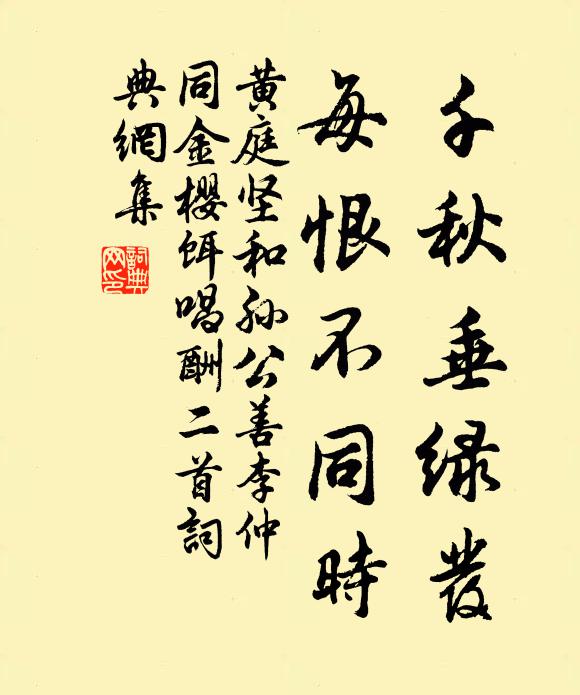 千秋垂緑發
每恨不同時
黄庭坚和孫公善李仲
同金櫻餌唱酬二首詞
典網集
詞典
网印